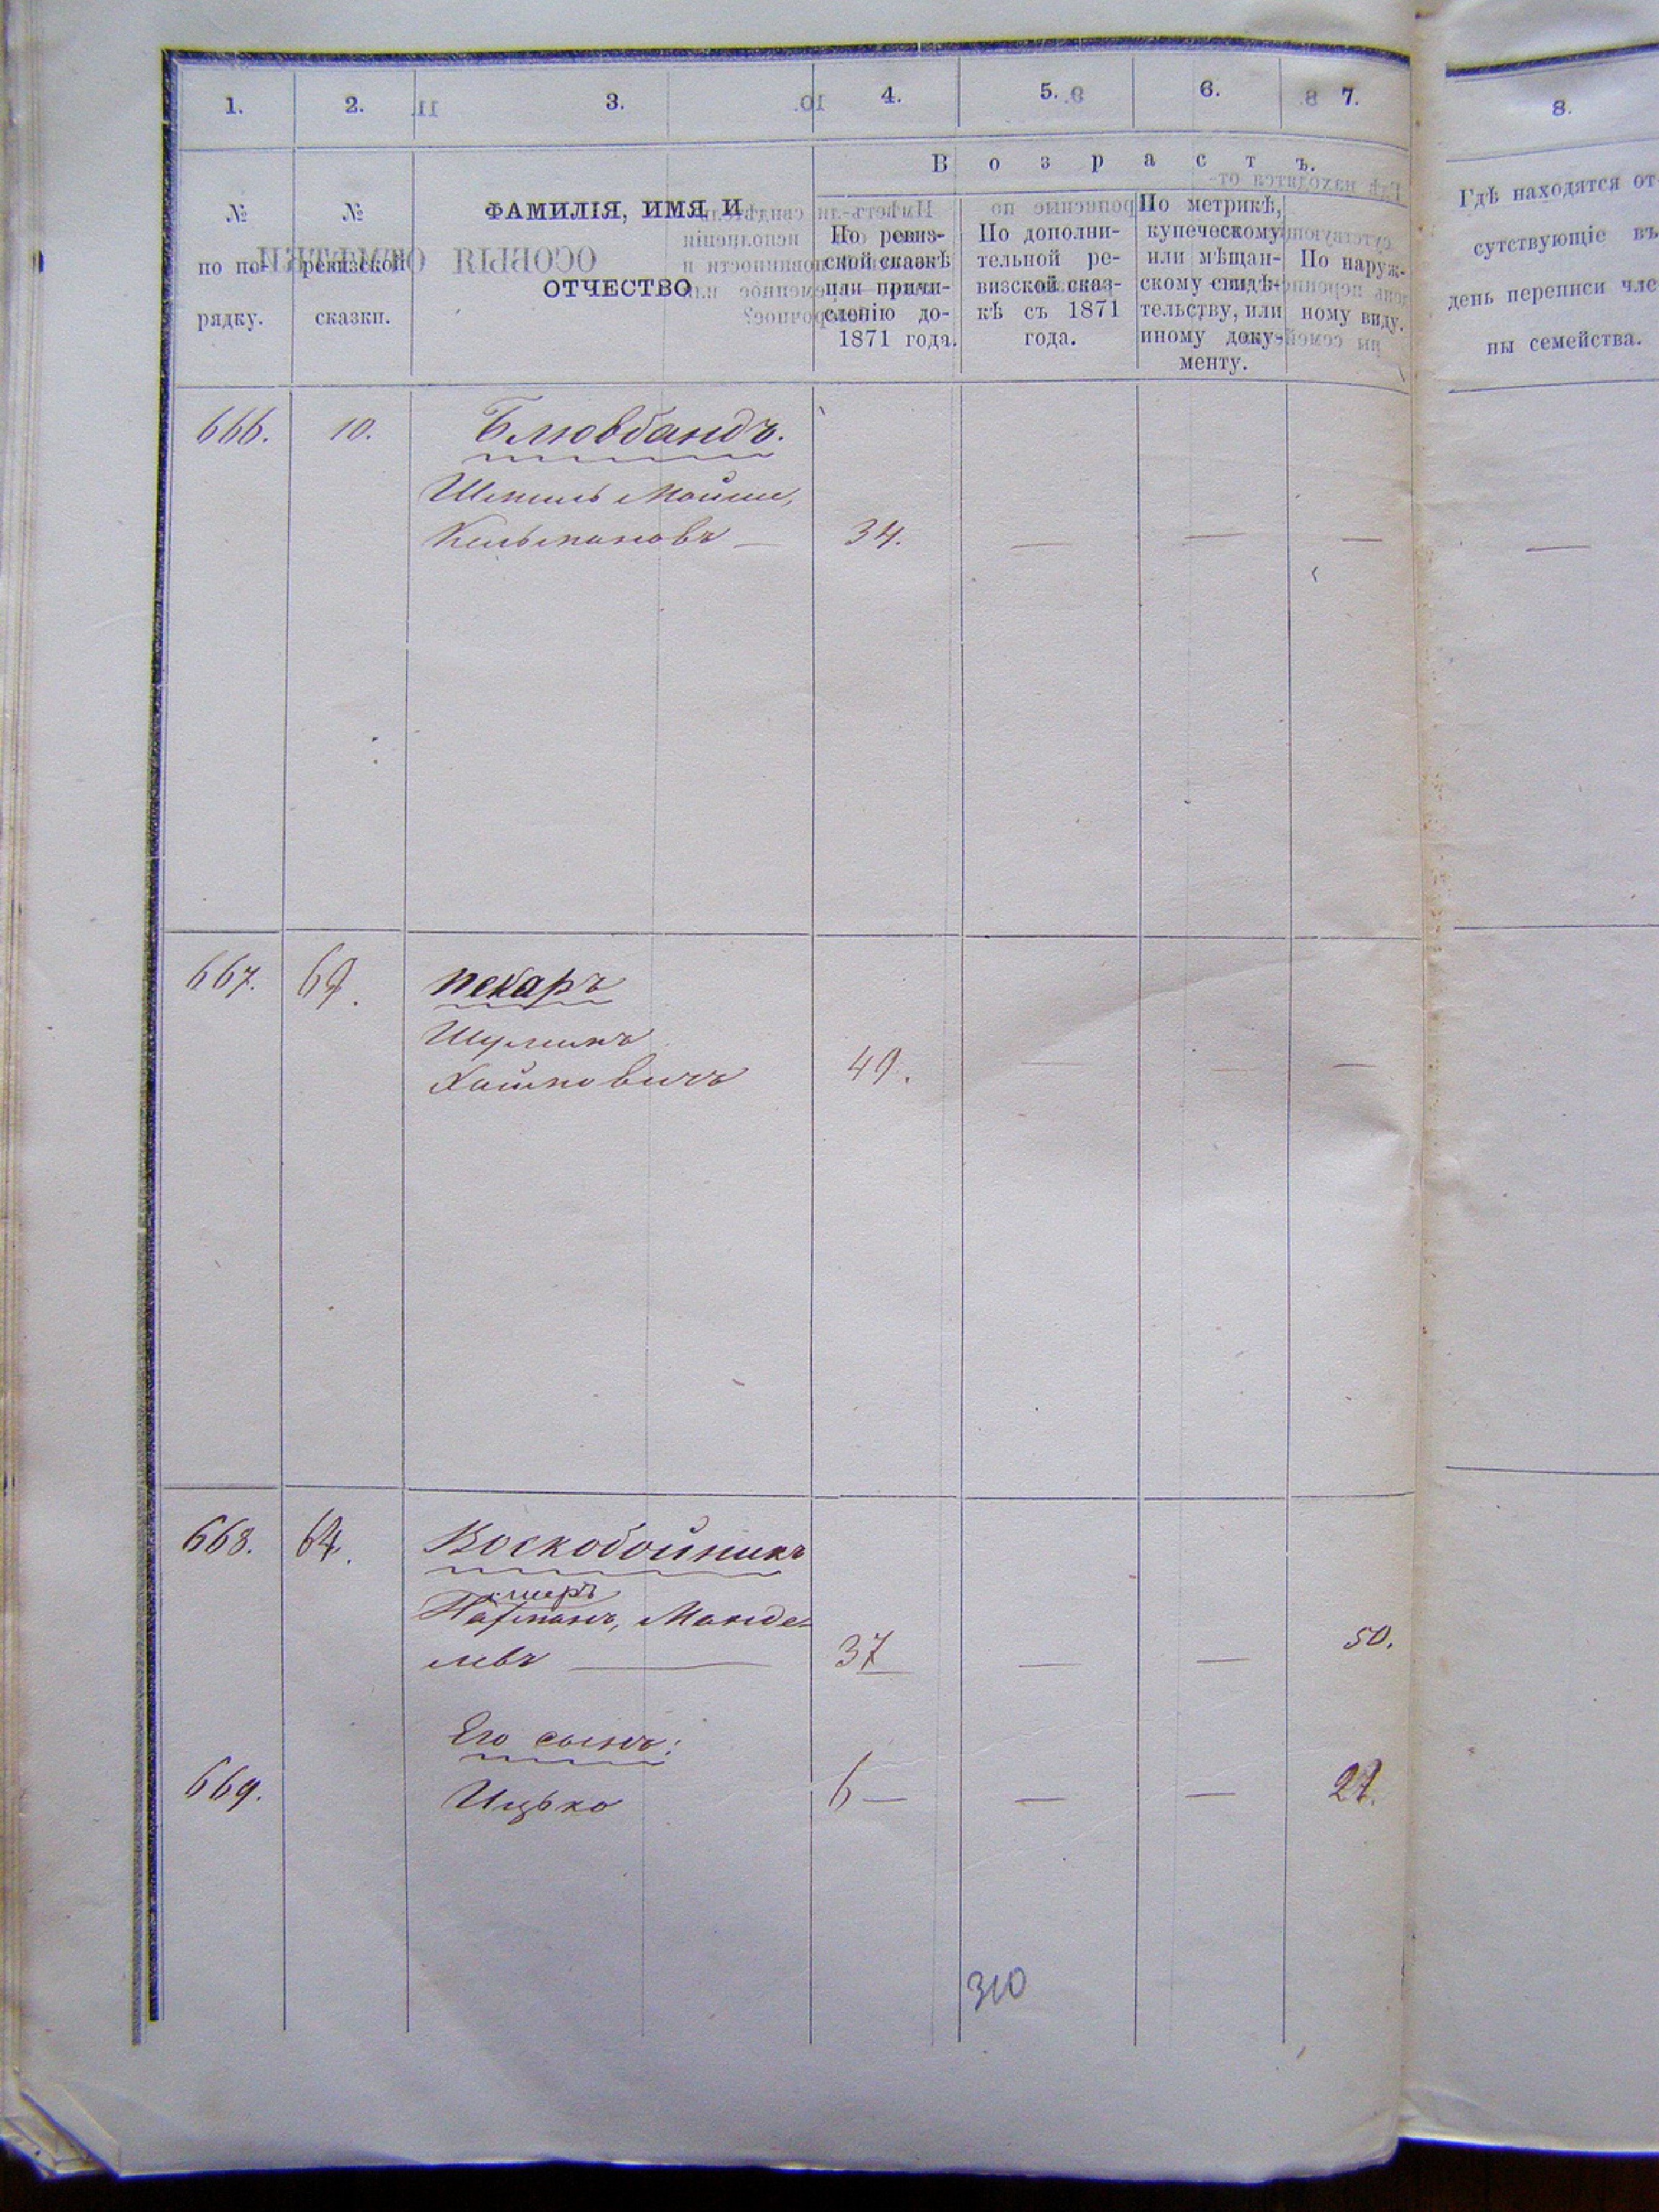 1. 2. 3. 4. 5. 6. 7. 8.
В о з р а с т ъ.
№ по порядку.
№ ревизской сказки.
ФАМИЛІЯ, ИМЯ И
ОТЧЕСТВО
По ревиз-
ской сказкѣ
или причи-
сленію до-
1871 года.
По дополни-
тельной ре-
визской сказ-
кѣ съ 1871
года.
По метрикѣ,
купеческому
или мѣщан-
скому свидѣ-
тельству, или
иному доку-
менту.
По наруж-
ному виду.
Гдѣ находятся от-
сутствующіе въ
день переписи чле-
ны семейства.
666. 10. Блювбандъ.
Мойше,
Кельмановъ — 34. — — — —
667. 69. пекаръ
Шулимъ
Хаймовичъ 49. — — —
668. 64. Воскобойникъ
умеръ
Нахманъ, Манде-
левъ — 37 — — 50.
Его сынъ:
669. Ицько 6 — — — 27.
310